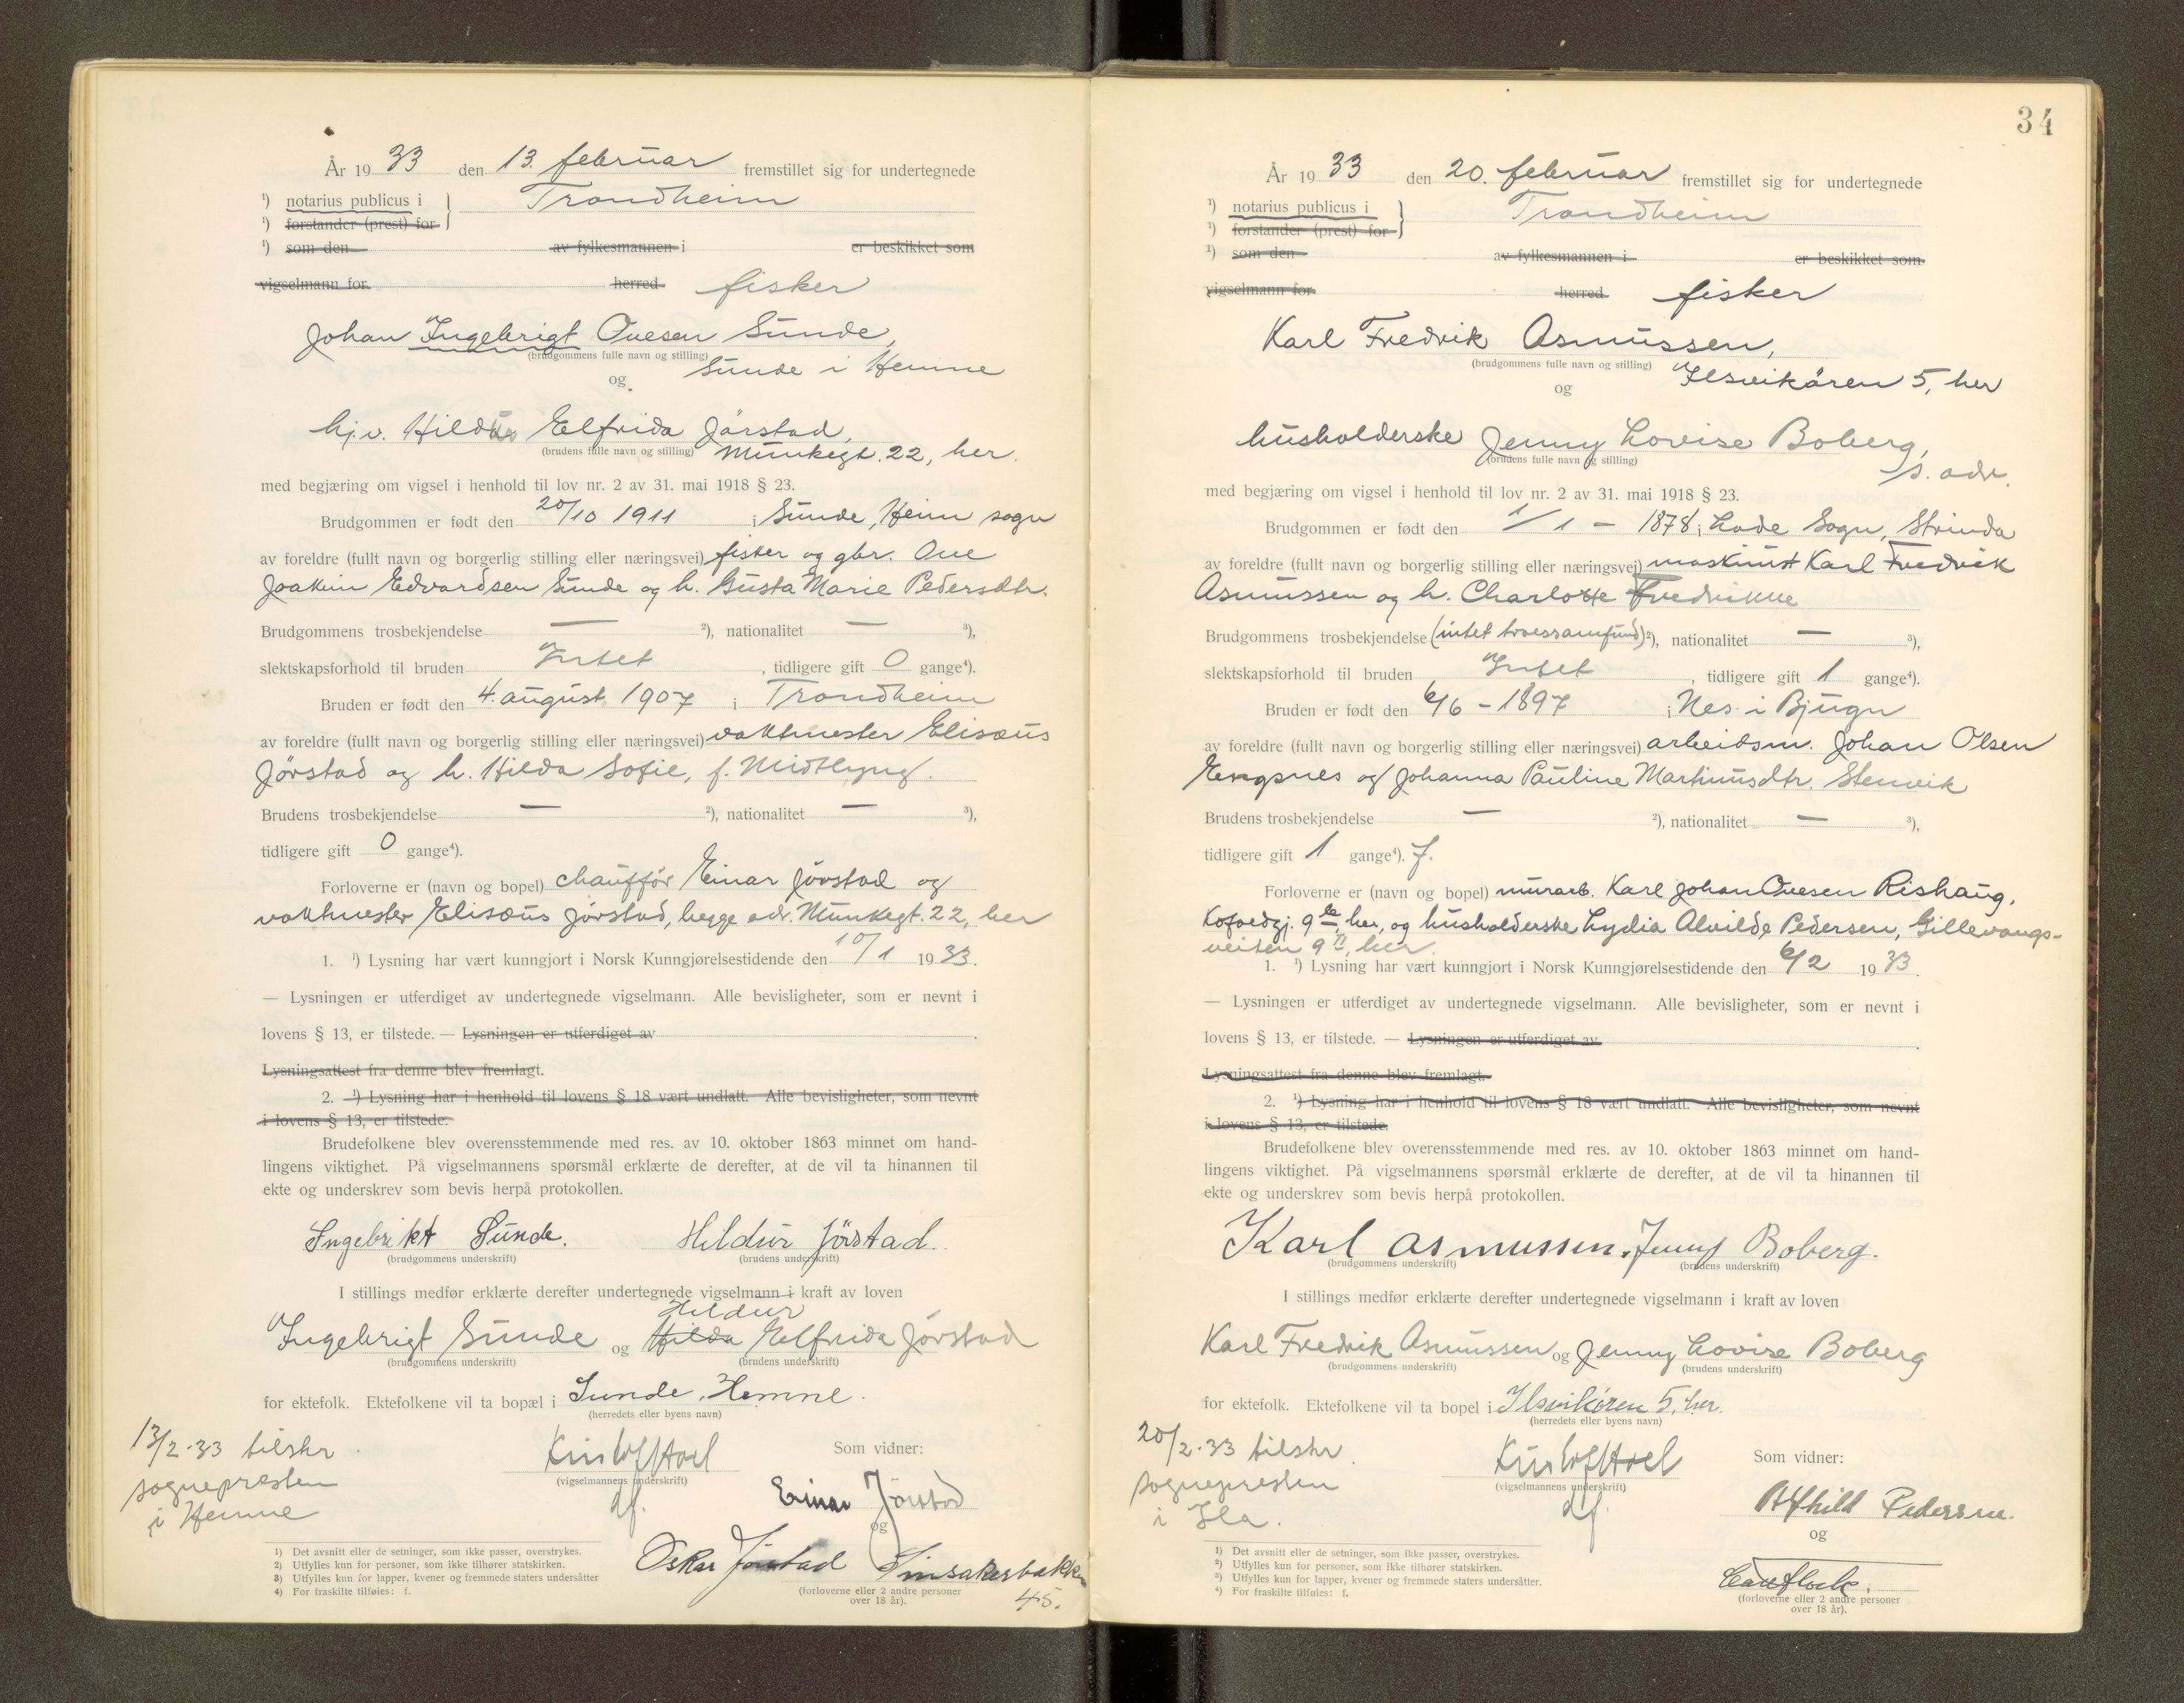 År 19 33 den 13. februar fremstillet sig for undertegnede
¹) notarius publicus i } Trondheim
¹) forstander (prest) for
¹) som den av fylkesmannen i er beskikket som
vigselmann for herred fisker
Johan Ingebrigt Ovesen Sunde,
(brudgommens fulle navn og stilling)
Sunde i Hemne
og
hj.v. Hildur Elfrida Jørstad,
(brudens fulle navn og stilling) Munkegt. 22, her.
med begjæring om vigsel i henhold til lov nr. 2 av 31. mai 1918 § 23.
Brudgommen er født den 20/10 1911 i Sunde, Heim sogn
av foreldre (fullt navn og borgerlig stilling eller næringsvei) fisker og gbr. Ove
Joakim Edvardsen Sunde og h. Gusta Marie Pedersdtr.
Brudgommens trosbekjendelse — ²), nationalitet — ³),
slektskapsforhold til bruden Intet, tidligere gift 0 gange⁴).
Bruden er født den 4. august 1907 i Trondheim
av foreldre (fullt navn og borgerlig stilling eller næringsvei) vaktmester Elisæus
Jørstad og h. Hilda Sofie, f. Midtlyng.
Brudens trosbekjendelse — ²), nationalitet — ³),
tidligere gift 0 gange⁴).
Forloverne er (navn og bopel) chauffør Einar Jørstad og
vaktmester Elisæus Jørstad, begge adr. Munkegt. 22, her
1. ¹) Lysning har vært kunngjort i Norsk Kunngjørelsestidende den 10/1 19 33.
— Lysningen er utferdiget av undertegnede vigselmann. Alle bevisligheter, som er nevnt i
lovens § 13, er tilstede. — Lysningen er utferdiget av
Lysningsattest fra denne blev fremlagt.
2. ¹) Lysning har i henhold til lovens § 18 vært undlatt. Alle bevisligheter, som nevnt
i lovens § 13, er tilstede.
Brudefolkene blev overensstemmende med res. av 10. oktober 1863 minnet om hand-
lingens viktighet. På vigselmannens spørsmål erklærte de derefter, at de vil ta hinannen til
ekte og underskrev som bevis herpå protokollen.
Ingebrikt Sunde. Hildur Jørstad.
(brudgommens underskrift) (brudens underskrift)
I stillings medfør erklærte derefter undertegnede vigselmann i kraft av loven
Hildur
Ingebrigt Sunde og Hilda Elfrida Jørstad
(brudgommens underskrift) (brudens underskrift)
for ektefolk. Ektefolkene vil ta bopæl i Sunde, Hemne.
(herredets eller byens navn)
13/2-33 tilskr
sognepresten
i Hemne
(vigselmannens underskrift)
df.
Som vidner:
Einar Jørstad
og
Oskar Jørstad Sinsakerbakken
45.
(forloverne eller 2 andre personer
over 18 år).
1) Det avsnitt eller de setninger, som ikke passer, overstrykes.
2) Utfylles kun for personer, som ikke tilhører statskirken.
3) Utfylles kun for lapper, kvener og fremmede staters undersåtter
4) For fraskilte tilføies: f.
34
År 19 33 den 20. februar fremstillet sig for undertegnede
¹) notarius publicus i } Trondheim
¹) forstander (prest) for
¹) som den av fylkesmannen i er beskikket som
vigselmann for herred fisker
Karl Fredrik Asmussen,
(brudgommens fulle navn og stilling)
Ilsvikøren 5, her
og
husholderske Jenny Lovise Boberg,
(brudens fulle navn og stilling)
s. adr.
med begjæring om vigsel i henhold til lov nr. 2 av 31. mai 1918 § 23.
Brudgommen er født den 1/1 - 1878 i Lade Sogn, Strinda
av foreldre (fullt navn og borgerlig stilling eller næringsvei) maskinist Karl Fredrik
Asmussen og h. Charlotte Fredrikke
Brudgommens trosbekjendelse (intet trossamfund) ²), nationalitet — ³),
slektskapsforhold til bruden Intet, tidligere gift 1 gange⁴).
Bruden er født den 6/6 - 1897 i Nes i Bjugn
av foreldre (fullt navn og borgerlig stilling eller næringsvei) arbeidsm. Johan Olsen
Engsnes og Johanna Pauline Martinusdtr. Stenvik
Brudens trosbekjendelse — ²), nationalitet — ³),
tidligere gift 1 gange⁴). f.
Forloverne er (navn og bopel) murarb. Karl Johan Ovesen Rishaug,
Kofoedgj. 9 her, og husholderske Lydia Alvilde Pedersen, Gillevangs-
veiten 9 II, her.
1. ¹) Lysning har vært kunngjort i Norsk Kunngjørelsestidende den 6/2 19 33.
— Lysningen er utferdiget av undertegnede vigselmann. Alle bevisligheter, som er nevnt i
lovens § 13, er tilstede. — Lysningen er utferdiget av
Lysningsattest fra denne blev fremlagt.
2. ¹) Lysning har i henhold til lovens § 18 vært undlatt. Alle bevisligheter, som nevnt
i lovens § 13, er tilstede.
Brudefolkene blev overensstemmende med res. av 10. oktober 1863 minnet om hand-
lingens viktighet. På vigselmannens spørsmål erklærte de derefter, at de vil ta hinannen til
ekte og underskrev som bevis herpå protokollen.
Karl Asmussen. Jenny Boberg.
(brudgommens underskrift) (brudens underskrift)
I stillings medfør erklærte derefter undertegnede vigselmann i kraft av loven
Karl Fredrik Asmussen og Jenny Lovise Boberg
(brudgommens underskrift) (brudens underskrift)
for ektefolk. Ektefolkene vil ta bopel i Ilsvikøren 5, her.
(herredets eller byens navn)
20/2-33 tilskr.
sognepresten
i Ila.
(vigselmannens underskrift)
df.
Som vidner:
Pedersen.
og
(forloverne eller 2 andre personer
over 18 år).
¹) Det avsnitt eller de setninger, som ikke passer, overstrykes.
²) Utfylles kun for personer, som ikke tilhører statskirken.
³) Utfylles kun for lapper, kvener og fremmede staters undersåtter.
⁴) For fraskilte tilføies: f.